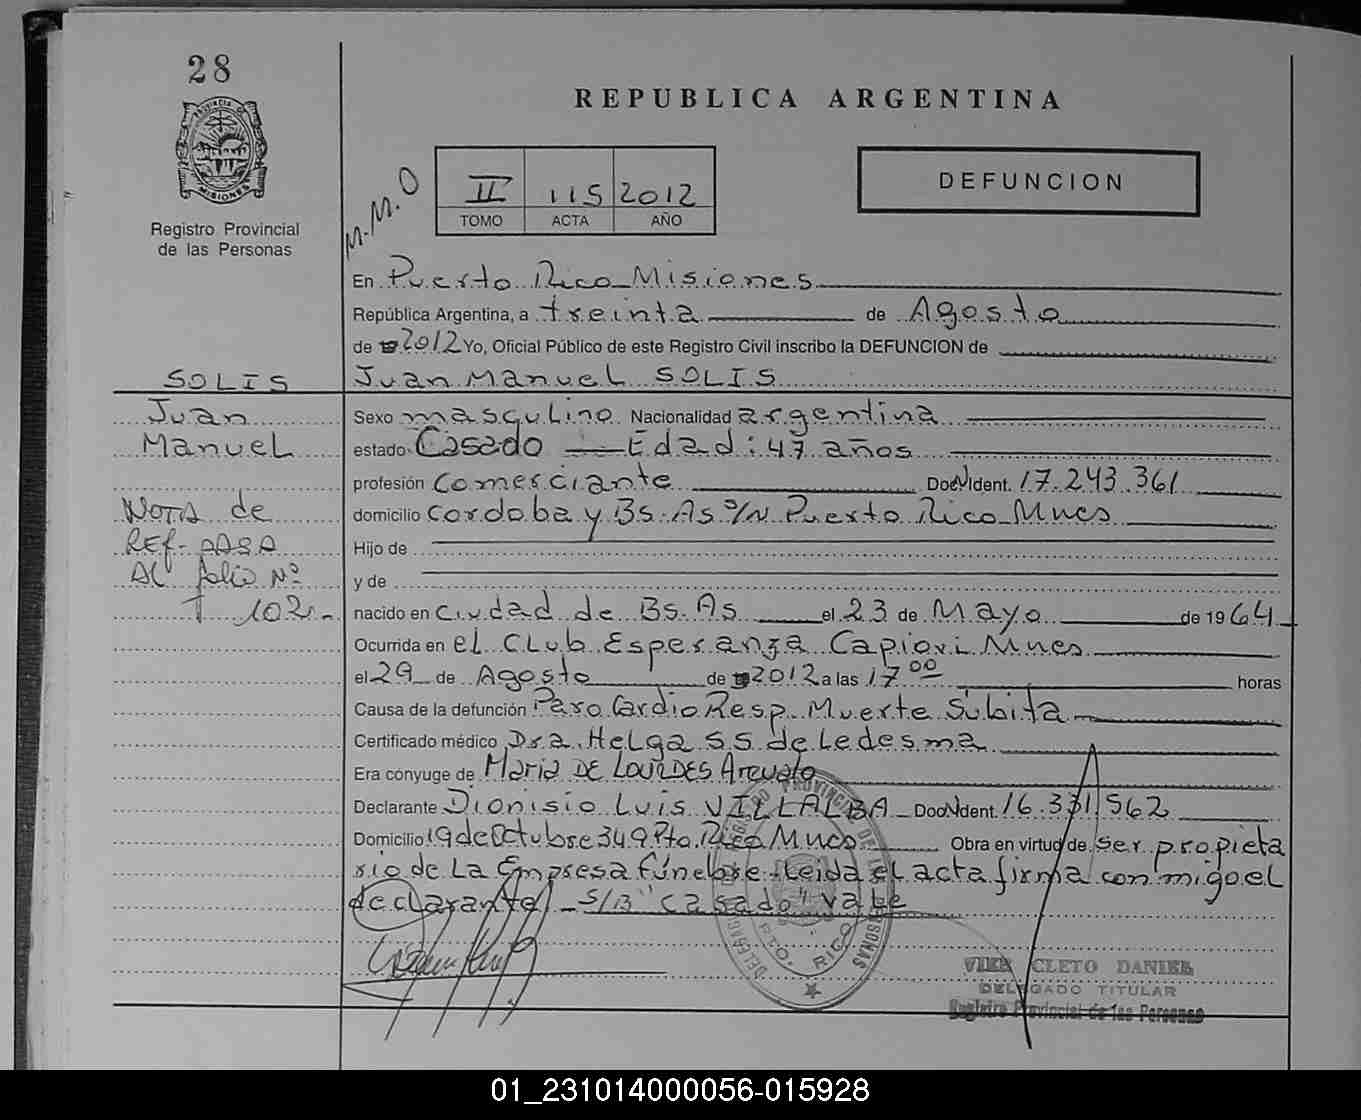 28
PROVINCIA DE
MISIONES
Registro Provincial
de las Personas
REPUBLICA ARGENTINA
M.M.O
II 115 2012
TOMO ACTA AÑO
DEFUNCION
En Puerto Rico Misiones
República Argentina, a treinta de Agosto
de 2012 Yo, Oficial Público de este Registro Civil inscribo la DEFUNCION de
SOLIS
Juan Manuel SOLIS
Juan
Manuel
Nota de
Ref- pasa
Al folio Nº
T 102.-
Sexo masculino Nacionalidad argentina
estado Casado Edad: 47 años
profesión Comerciante Doc N Ident. 17.243.361
domicilio Cordoba y Bs. As S/N Puerto Rico Mnes
Hijo de
y de
nacido en Ciudad de Bs. As el 23 de Mayo de 1964
Ocurrida en el Club Esperanza Capiovi Mnes
el 29 de Agosto de 2012 a las 17 00 horas
Causa de la defunción Paro Cardio Resp. Muerte Súbita
Certificado médico Dra. Helga S S de Ledesma
Era conyuge de Maria DE LOURDES Arevalo
Declarante Dionisio Luis VILLALBA Doc N Ident. 16.331.562
Domicilio 19 de Octubre 349 Pto. Rico Mnes Obra en virtud de ser propieta
rio de La Empresa fúnebre - Leida el acta firma conmigo el
declarante - S/B "casado" vale
PROVINCIAL DE LAS PERSONAS
PTO. RICO
CLETO DANIEL
DELEGADO TITULAR
Registro Provincial de las Personas
01_231014000056-015928